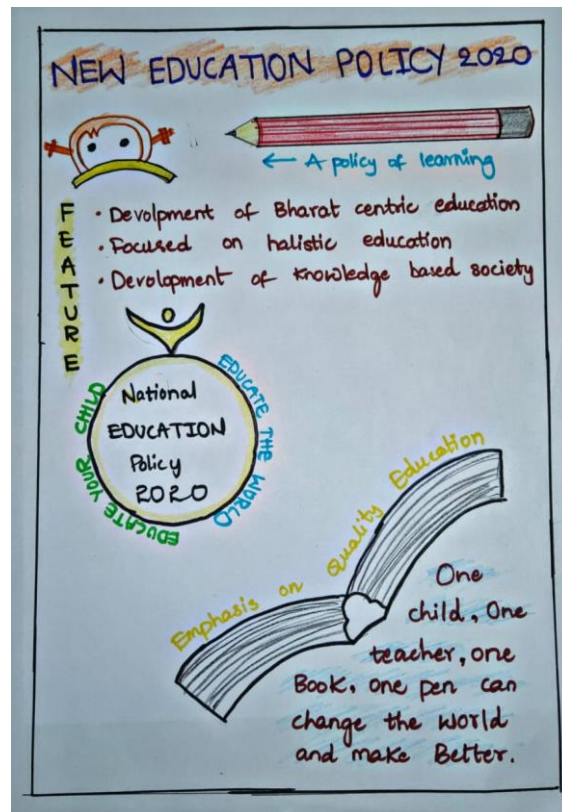 NEW EDUCATION POLICY 2020
← A policy of learning
FEATURE
• Devolpment of Bharat centric education
• Focused on halistic education
• Devolopment of knowledge based society
National
EDUCATION
Policy
2020
EDUCATE YOUR CHILD
EDUCATE THE WORLD
Emphasis on Quality Education
One
child, One
teacher, one
Book, one pen can
change the world
and make Better.